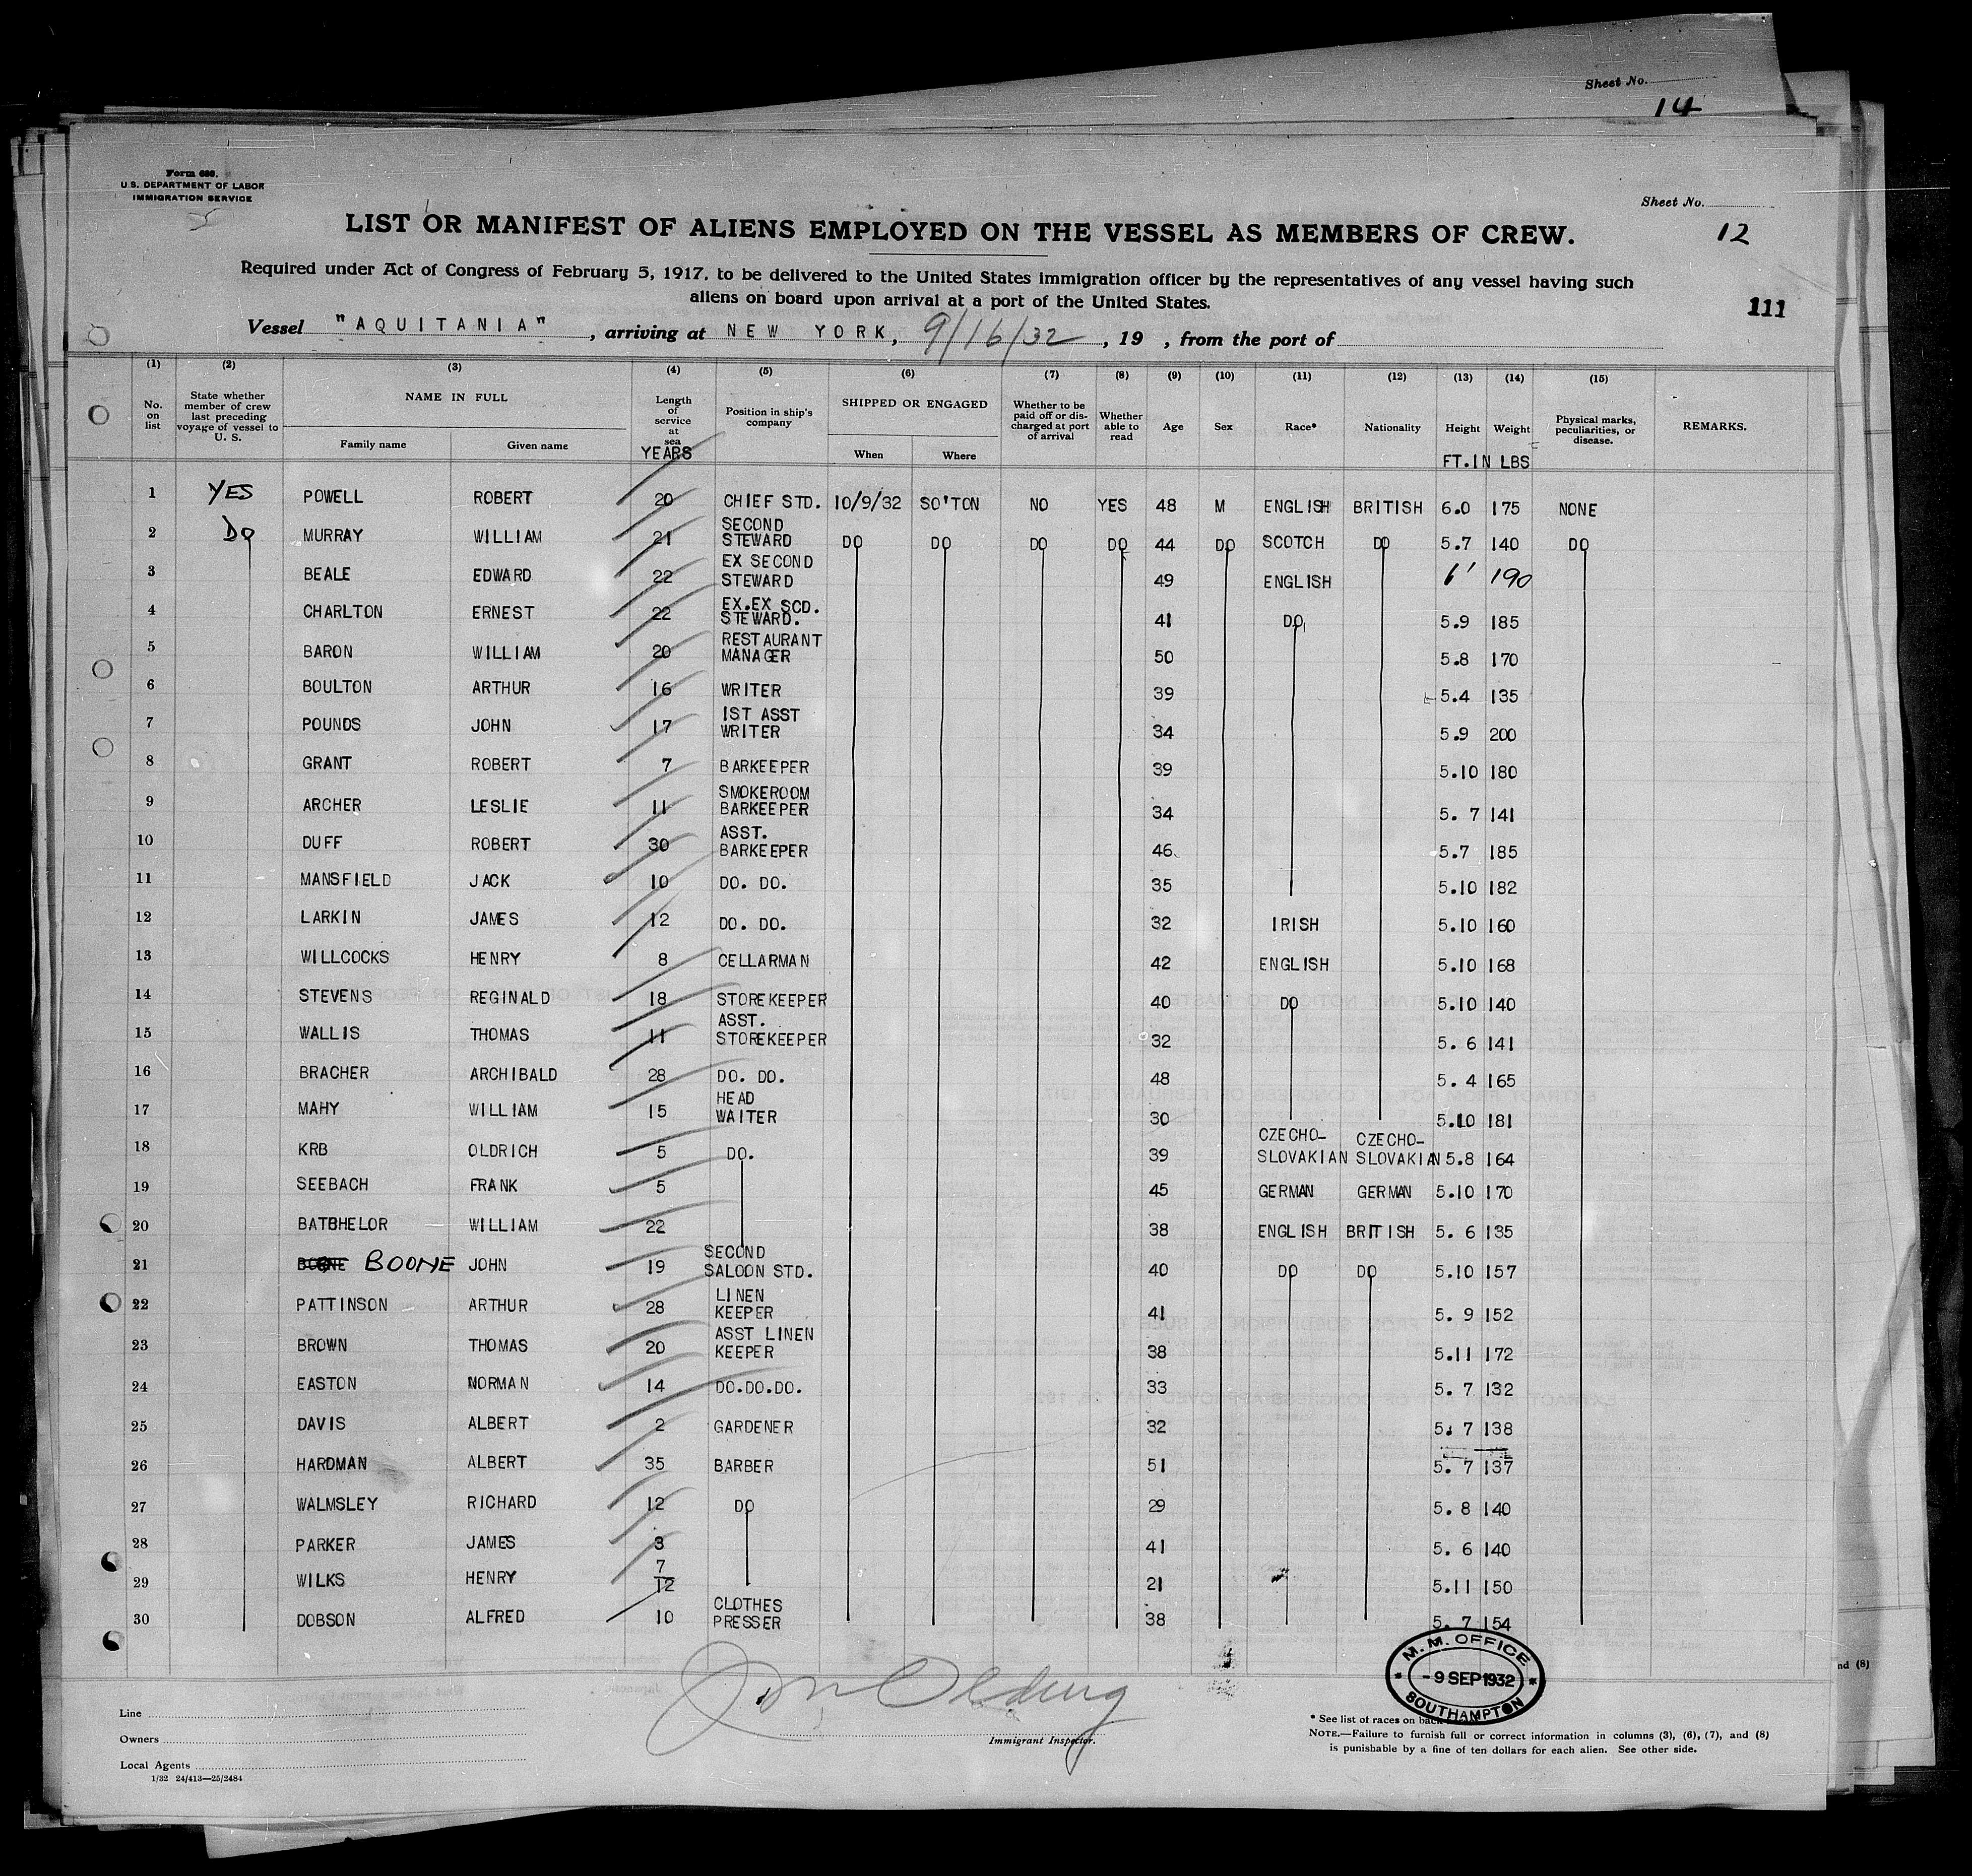 Sheet No.
14
Form 680.
U.S. DEPARTMENT OF LABOR
IMMIGRATION SERVICE
Sheet No.
12
LIST OR MANIFEST OF ALIENS EMPLOYED ON THE VESSEL AS MEMBERS OF CREW.
Required under Act of Congress of February 5, 1917, to be delivered to the United States immigration officer by the representatives of any vessel having such
aliens on board upon arrival at a port of the United States.
111
Vessel "AQUITANIA" , arriving at NEW YORK, 9/16/32 , 19 , from the port of
(1) (2) (3) (4) (5) (6) (7) (8) (9) (10) (11) (12) (13) (14) (15)
No. on list State whether member of crew last preceding voyage of vessel to U. S. NAME IN FULL Family name Given name Length of service at sea YEARS Position in ship's company SHIPPED OR ENGAGED When Where Whether to be paid off or discharged at port of arrival Whether able to read Age Sex Race* Nationality Height FT.IN Weight LBS Physical marks, peculiarities, or disease. REMARKS.
1 YES POWELL ROBERT 20 CHIEF STD. 10/9/32 SO'TON NO YES 48 M ENGLISH BRITISH 6.0 175 NONE
2 DO MURRAY WILLIAM 21 SECOND STEWARD DO DO DO DO 44 DO SCOTCH DO 5.7 140 DO
3 BEALE EDWARD 22 EX SECOND STEWARD 49 ENGLISH 6' 190
4 CHARLTON ERNEST 22 EX.EX SCD. STEWARD. 41 DO 5.9 185
5 BARON WILLIAM 20 RESTAURANT MANAGER 50 5.8 170
6 BOULTON ARTHUR 16 WRITER 39 5.4 135
7 POUNDS JOHN 17 IST ASST WRITER 34 5.9 200
8 GRANT ROBERT 7 BARKEEPER 39 5.10 180
9 ARCHER LESLIE 11 SMOKEROOM BARKEEPER 34 5. 7 141
10 DUFF ROBERT 30 ASST. BARKEEPER 46 5.7 185
11 MANSFIELD JACK 10 DO. DO. 35 5.10 182
12 LARKIN JAMES 12 DO. DO. 32 IRISH 5.10 160
13 WILLCOCKS HENRY 8 CELLARMAN 42 ENGLISH 5.10 168
14 STEVENS REGINALD 18 STOREKEEPER 40 DO 5.10 140
15 WALLIS THOMAS 11 ASST. STOREKEEPER 32 5. 6 141
16 BRACHER ARCHIBALD 28 DO. DO. 48 5. 4 165
17 MAHY WILLIAM 15 HEAD WAITER 30 5.10 181
18 KRB OLDRICH 5 DO. 39 CZECHO-SLOVAKIAN CZECHO-SLOVAKIAN 5.8 164
19 SEEBACH FRANK 5 45 GERMAN GERMAN 5.10 170
20 BATBHELOR WILLIAM 22 38 ENGLISH BRITISH 5. 6 135
21 BOONE JOHN 19 SECOND SALOON STD. 40 DO DO 5.10 157
22 PATTINSON ARTHUR 28 LINEN KEEPER 41 5. 9 152
23 BROWN THOMAS 20 ASST LINEN KEEPER 38 5.11 172
24 EASTON NORMAN 14 DO.DO.DO. 33 5. 7 132
25 DAVIS ALBERT 2 GARDENER 32 5. 7 138
26 HARDMAN ALBERT 35 BARBER 51 5. 7 137
27 WALMSLEY RICHARD 12 DO 29 5. 8 140
28 PARKER JAMES 3 41 5. 6 140
29 WILKS HENRY 7/12 21 5.11 150
30 DOBSON ALFRED 10 CLOTHES PRESSER 38 5. 7 154
M. M. OFFICE
- 9 SEP 1932
SOUTHAMPTON
Line
Owners
Local Agents
1/32 24/413—25/2484
Immigrant Inspector.
* See list of races on back
NOTE.—Failure to furnish full or correct information in columns (3), (6), (7), and (8)
is punishable by a fine of ten dollars for each alien. See other side.
nd (8)